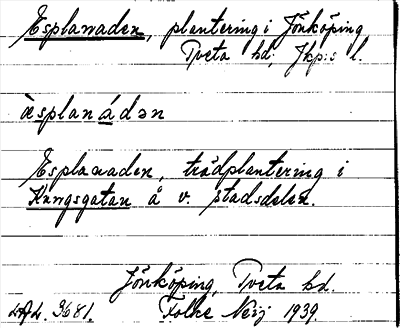 Esplanaden, plantering i Jönköping
Tveta hd; Jkp:s l.
èsplanádən
Esplanaden, trädplantering i
Kungsgatan å v. stadsdelen.
Jönköping, Tveta hd.
3681. Folke Neij 1939.